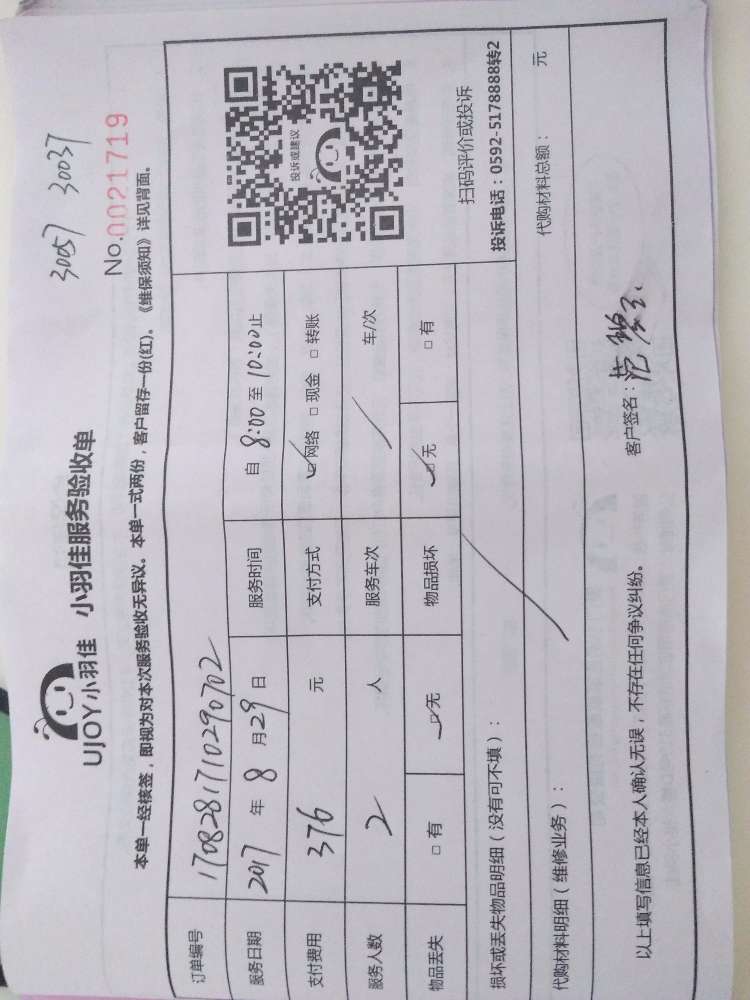 3057 30037
UJOY小羽佳 小羽佳服务验收单
No.0021719
本单一经核签，即视为对本次服务验收无异议。本单一式两份，客户留存一份(红)。《维保须知》详见背面。
订单编号 1708281710290702
服务日期 2017 年 8 月 29 日 服务时间 自 8:00 至 10:00 止
支付费用 376 元 支付方式 ☑ 网络 □ 现金 □ 转账
服务人数 2 人 服务车次 / 车/次
物品丢失 □ 有 ☑ 无 物品损坏 ☑ 无 □ 有
投诉或建议
扫码评价或投诉
投诉电话：0592-5178888转2
损坏或丢失物品明细（没有可不填）：
代购材料明细（维修业务）： 代购材料总额： 元
以上填写信息已经本人确认无误，不存在任何争议纠纷。 客户签名：